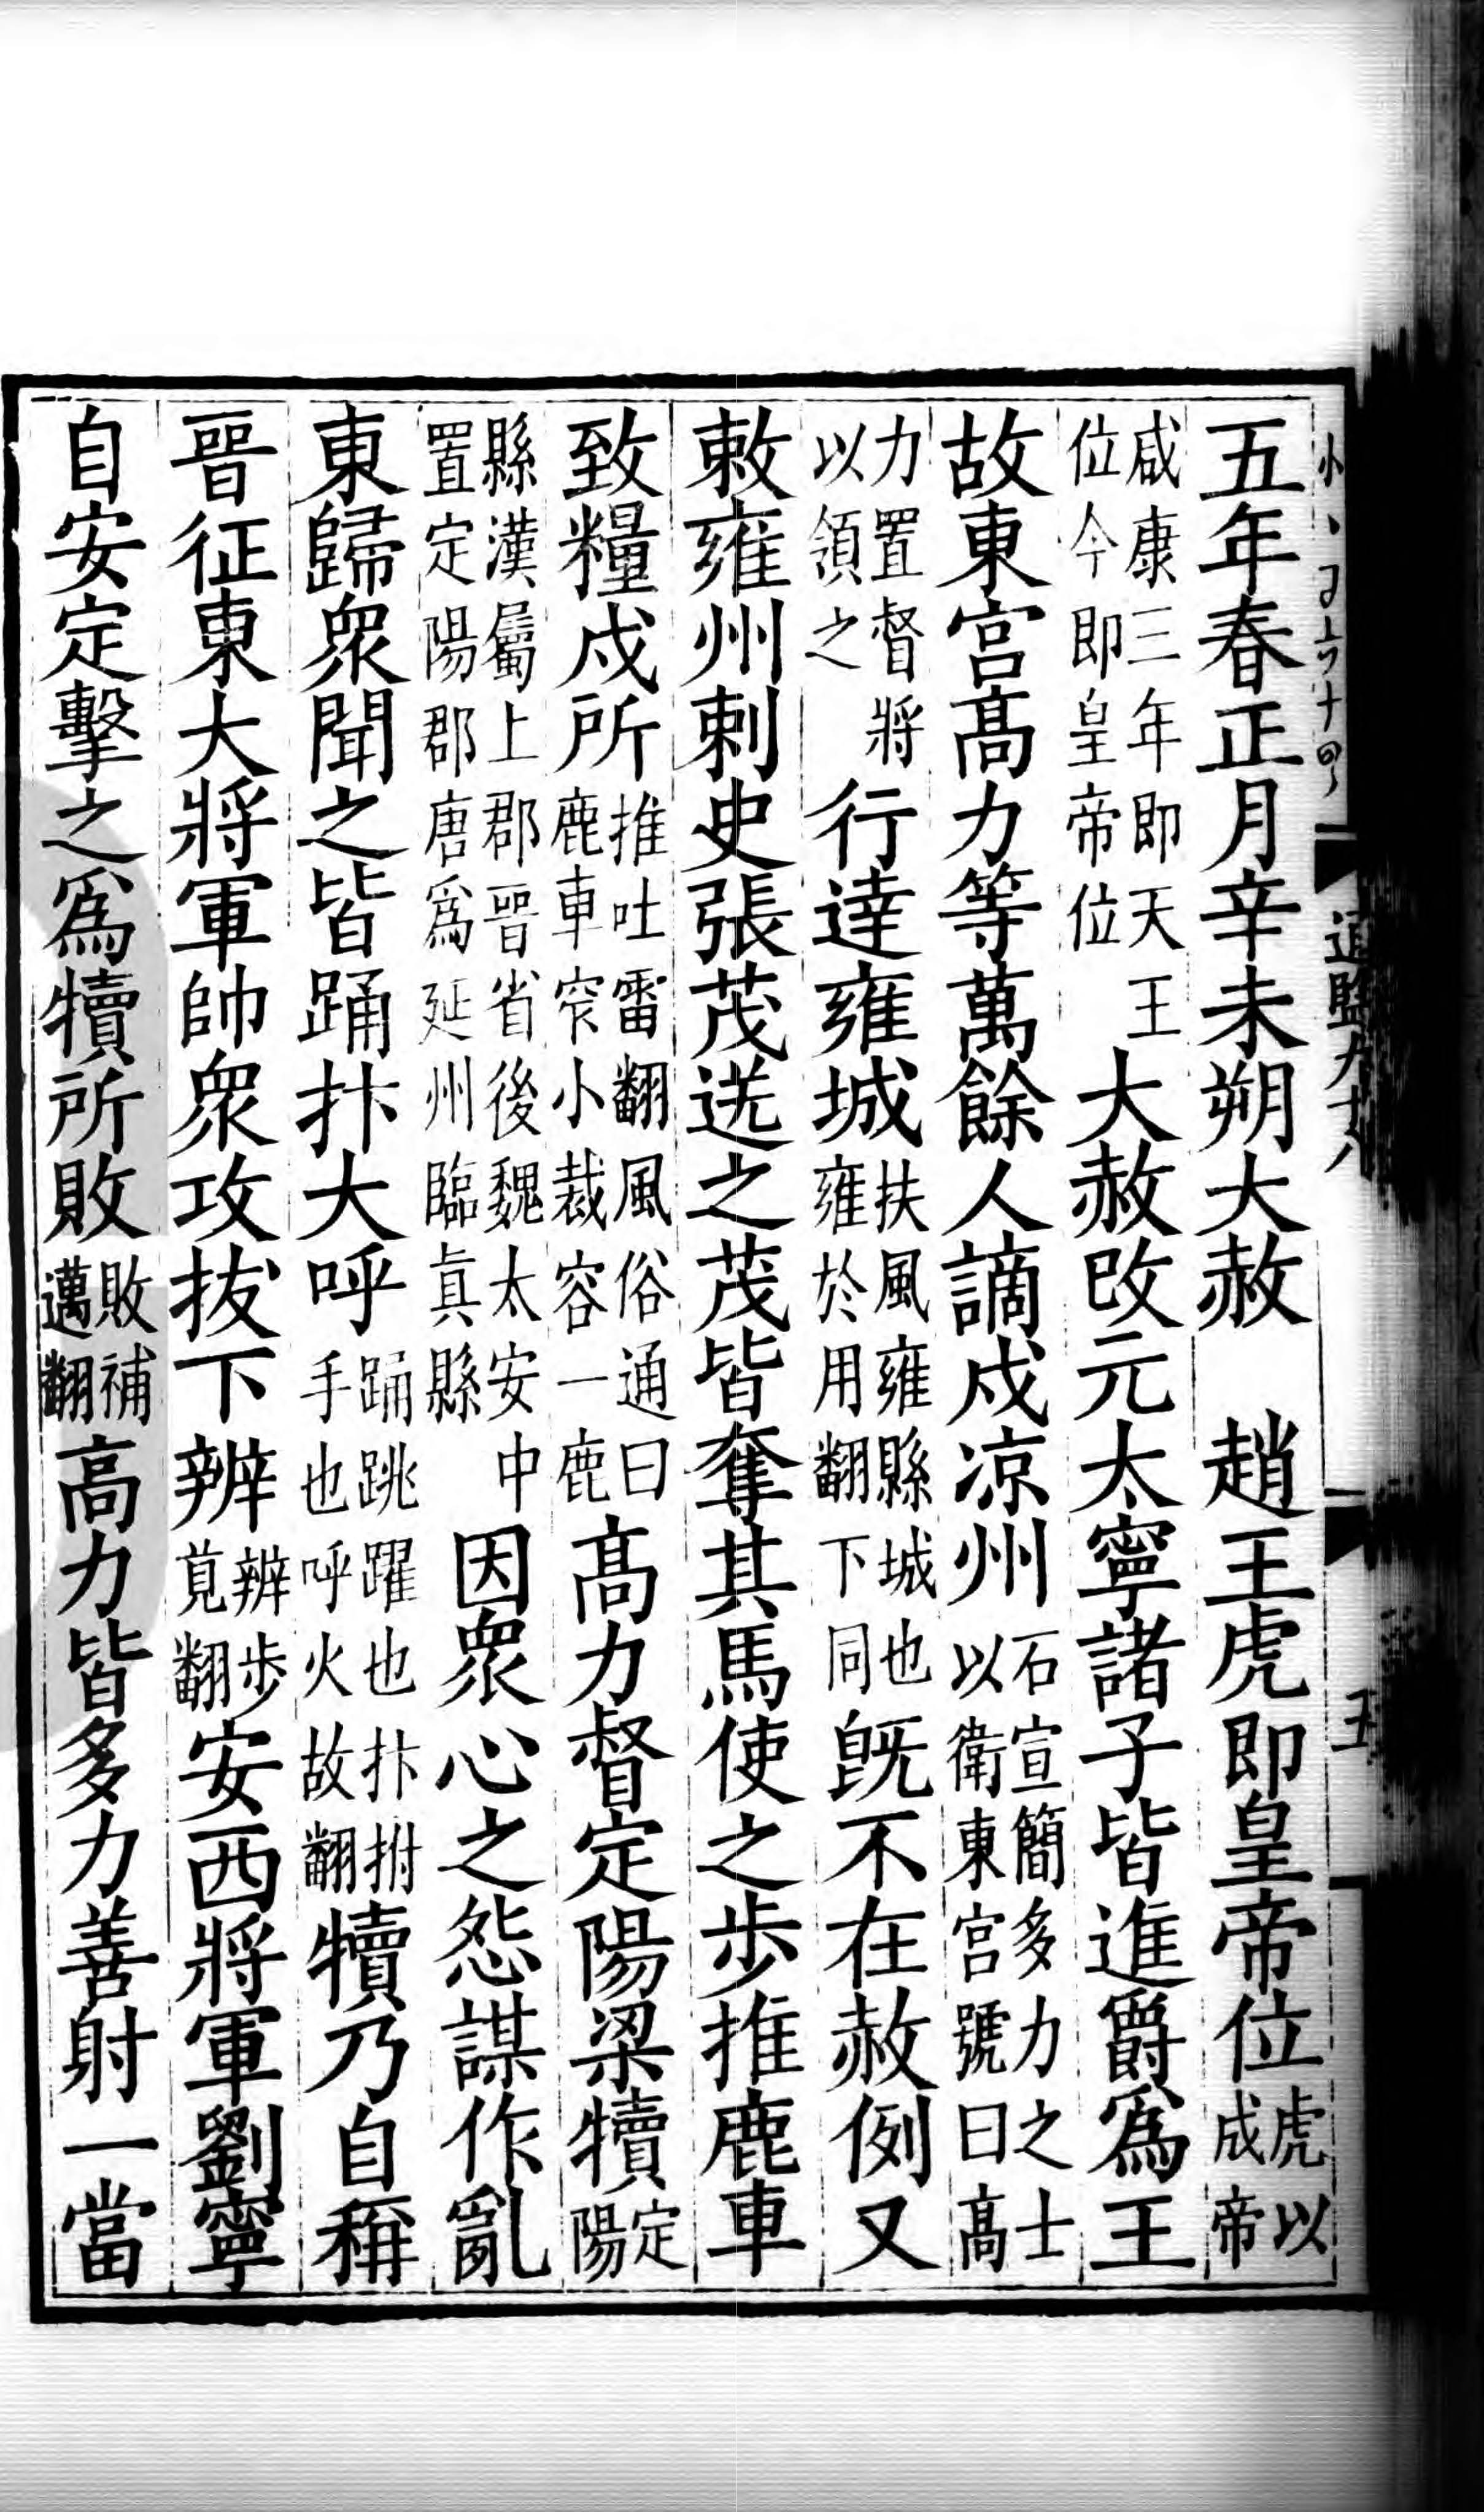 五年春正月辛未朔大赦　趙王虎即皇帝位虎以成帝
咸康三年即天王位今即皇帝位大赦改元太寧諸子皆進爵爲王
故東宮高力等萬餘人謫戍涼州石宣簡多力之士以衛東宮號曰高
力置督將以領之行達雍城扶風雍縣城也雍於用翻下同既不在赦例又
敕雍州刺史張茂送之茂皆奪其馬使之步推鹿車
致糧戍所推吐雷翻風俗通曰鹿車窄小裁容一鹿高力督定陽梁犢定陽
縣漢屬上郡晉省後魏太安中置定陽郡唐爲延州臨真縣因衆心之怨謀作亂
東歸衆聞之皆踊抃大呼踊跳躍也抃拊手也呼火故翻犢乃自稱
晉征東大將軍帥衆攻拔下辨辨步莧翻安西將軍劉寧
自安定擊之爲犢所敗敗補邁翻高力皆多力善射一當
通鑑九十八
五